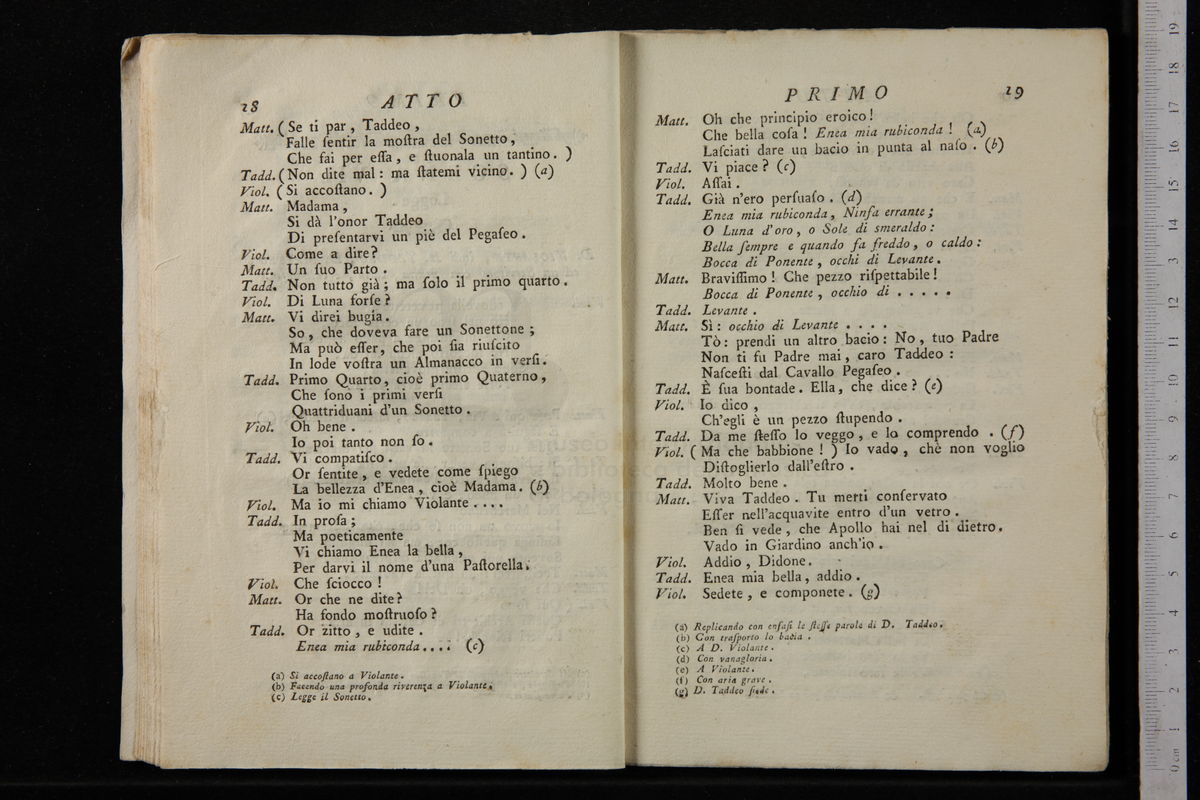 18 ATTO
Matt. ( Se ti par , Taddeo ,
Falle ſentir la moſtra del Sonetto ,
Che fai per eſſa , e ſtuonala un tantino . )
Tadd. ( Non dite mal : ma ſtatemi vicino . ) (a)
Viol. ( Si accoſtano . )
Matt. Madama ,
Si dà l'onor Taddeo
Di preſentarvi un piè del Pegaſeo .
Viol. Come a dire ?
Matt. Un ſuo Parto .
Tadd. Non tutto già ; ma ſolo il primo quarto .
Viol. Di Luna forſe ?
Matt. Vi direi bugia .
So , che doveva fare un Sonettone ;
Ma può eſſer , che poi ſia riuſcito
In lode voſtra un Almanacco in verſi .
Tadd. Primo Quarto , cioè primo Quaterno ,
Che ſono i primi verſi
Quattriduani d'un Sonetto .
Viol. Oh bene .
Io poi tanto non ſo .
Tadd. Vi compatiſco .
Or ſentite , e vedete come ſpiego
La bellezza d'Enea , cioè Madama . (b)
Viol. Ma io mi chiamo Violante . . . .
Tadd. In proſa ;
Ma poeticamente
Vi chiamo Enea la bella ,
Per darvi il nome d'una Paſtorella .
Viol. Che ſciocco !
Matt. Or che ne dite ?
Ha fondo moſtruoſo ?
Tadd. Or zitto , e udite .
Enea mia rubiconda . . . . (c)
(a) Si accoſtano a Violante .
(b) Facendo una profonda riverenza a Violante .
(c) Legge il Sonetto .
PRIMO 19
Matt. Oh che principio eroico !
Che bella coſa ! Enea mia rubiconda ! (a)
Laſciati dare un bacio in punta al naſo . (b)
Tadd. Vi piace ? (c)
Viol. Aſſai .
Tadd. Già n'ero perſuaſo . (d)
Enea mia rubiconda , Ninfa errante ;
O Luna d'oro , o Sole di smeraldo :
Bella ſempre e quando fa freddo , o caldo :
Bocca di Ponente , occhi di Levante .
Matt. Braviſſimo ! Che pezzo riſpettabile !
Bocca di Ponente , occhio di . . . . .
Tadd. Levante .
Matt. Sì : occhio di Levante . . . .
Tò : prendi un altro bacio : No , tuo Padre
Non ti fu Padre mai , caro Taddeo :
Naſceſti dal Cavallo Pegaſeo .
Tadd. È ſua bontade . Ella , che dice ? (e)
Viol. Io dico ,
Ch'egli è un pezzo ſtupendo .
Tadd. Da me ſteſſo lo veggo , e lo comprendo . (f)
Viol. ( Ma che babbione ! ) Io vado , chè non voglio
Diſtoglierlo dall'eſtro .
Tadd. Molto bene .
Matt. Viva Taddeo . Tu merti conſervato
Eſſer nell'acquavite entro d'un vetro .
Ben ſi vede , che Apollo hai nel di dietro .
Vado in Giardino anch'io .
Viol. Addio , Didone .
Tadd. Enea mia bella , addio .
Viol. Sedete , e componete . (g)
(a) Replicando con enfaſi le ſteſſe parole di D. Taddeo .
(b) Con traſporto lo bacia .
(c) A D. Violante .
(d) Con vanagloria .
(e) A Violante .
(f) Con aria grave .
(g) D. Taddeo ſiede .
0 cm 1 2 3 4 5 6 7 8 9 10 11 12 13 14 15 16 17 18 19